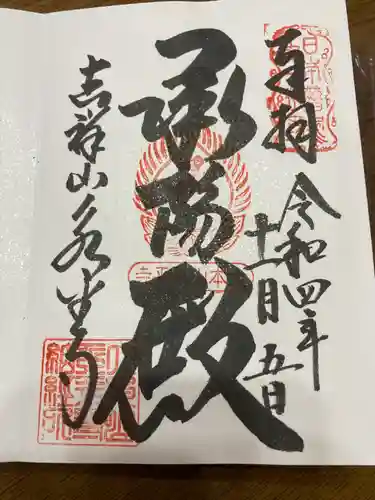 奉拝
令和四年
十一月五日
承陽殿
吉祥山永平寺